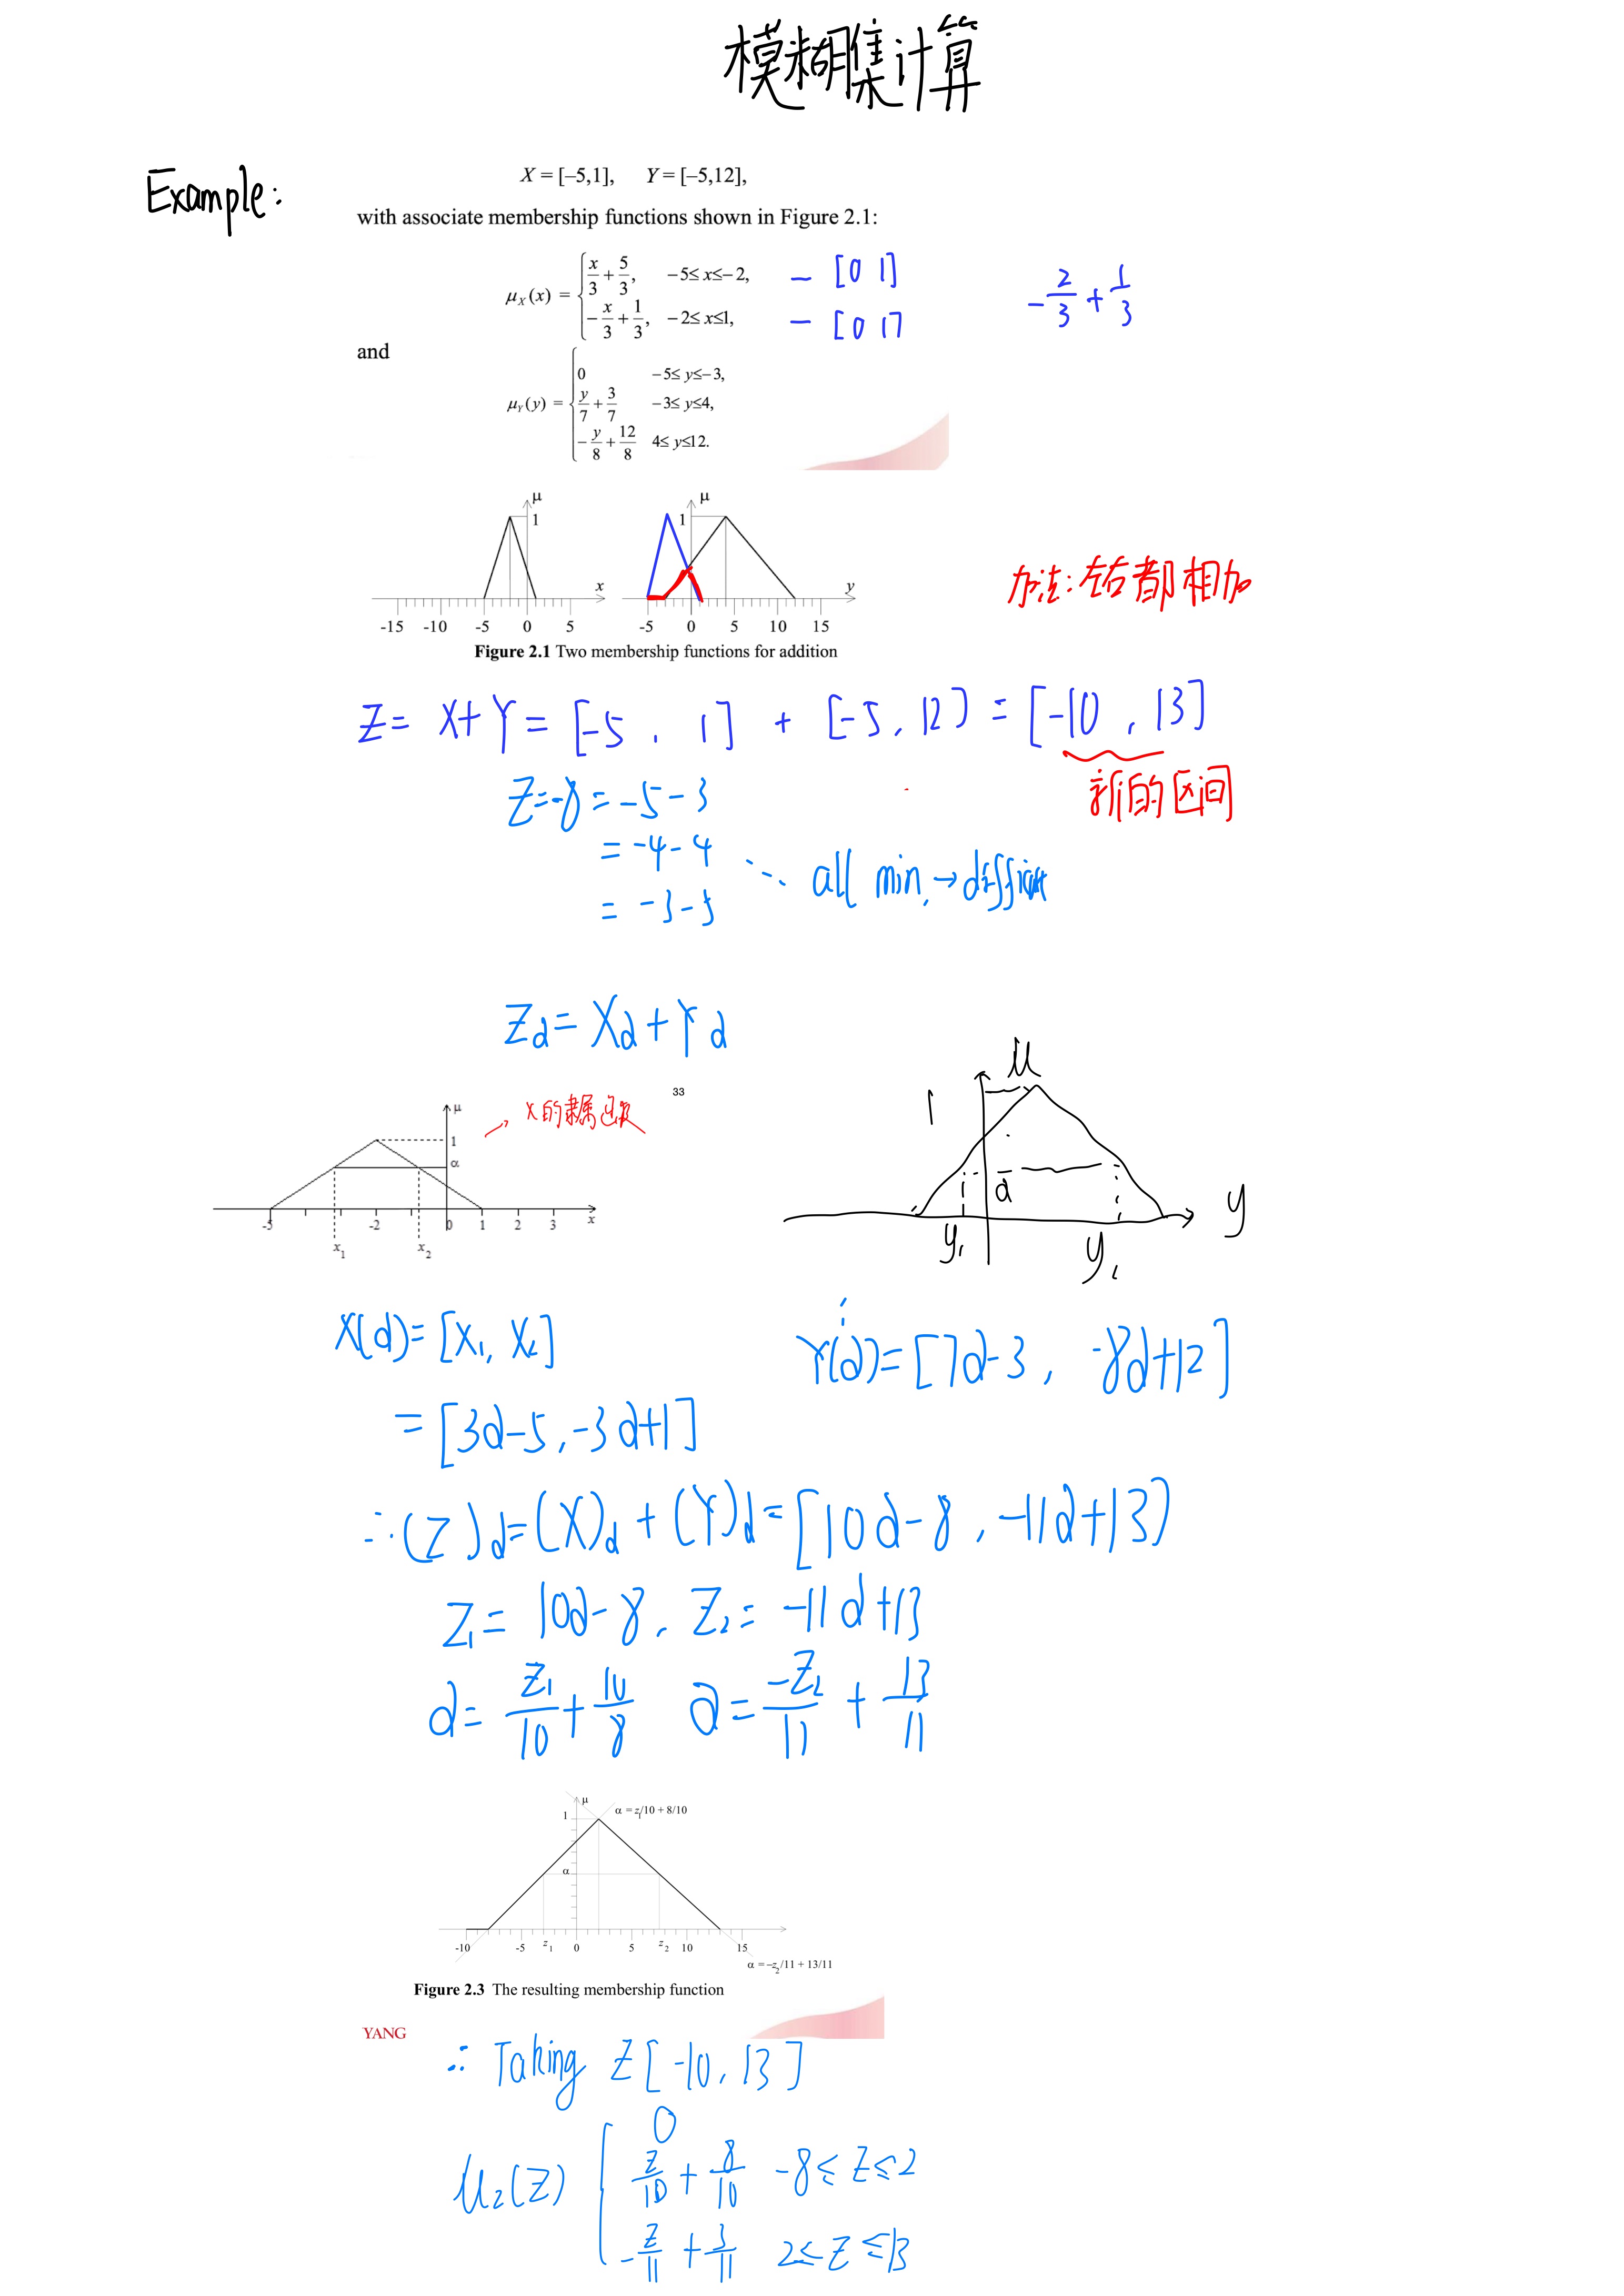 模糊集计算
Example:
X = [–5,1], Y = [–5,12],
with associate membership functions shown in Figure 2.1:
μX(x) = { x/3 + 5/3, –5≤ x≤–2, – [0 1]
–x/3 + 1/3, –2≤ x≤1, – [0 1]
-2/3 + 1/3
and
μY(y) = { 0 –5≤ y≤–3,
y/7 + 3/7 –3≤ y≤4,
–y/8 + 12/8 4≤ y≤12.
μ 1 x -15 -10 -5 0 5
μ 1 y -5 0 5 10 15
加法:左右都相加
Figure 2.1 Two membership functions for addition
Z = X+Y = [-5, 1] + [-5, 12] = [-10, 13]
新的区间
Z=-8 = -5-3
= -4-4
= -3-5
... all min, →
Zα = Xα + Yα
33
x的隶属函数
μ 1 α -5 -2 0 1 2 3 x
x1 x2
μ 1 α y
y1 y2
X(α) = [X1, X2]
Y(α) = [7α-3, -8α+12]
= [3α-5, -3α+1]
∴(Z)α = (X)α + (Y)α = [10α-8, -11α+13)
Z1 = 10α-8, Z2 = -11α+13
α = Z1/10 + 10/8 α = -Z2/11 + 13/11
μ α = z1/10 + 8/10
1
α
-10 -5 z1 0 5 z2 10 15
α = –z2/11 + 13/11
Figure 2.3 The resulting membership function
YANG
∴ Taking Z[-10, 13]
μz(Z) { 0
Z/10 + 8/10 -8≤Z≤2
-Z/11 + 3/11 2≤Z≤13